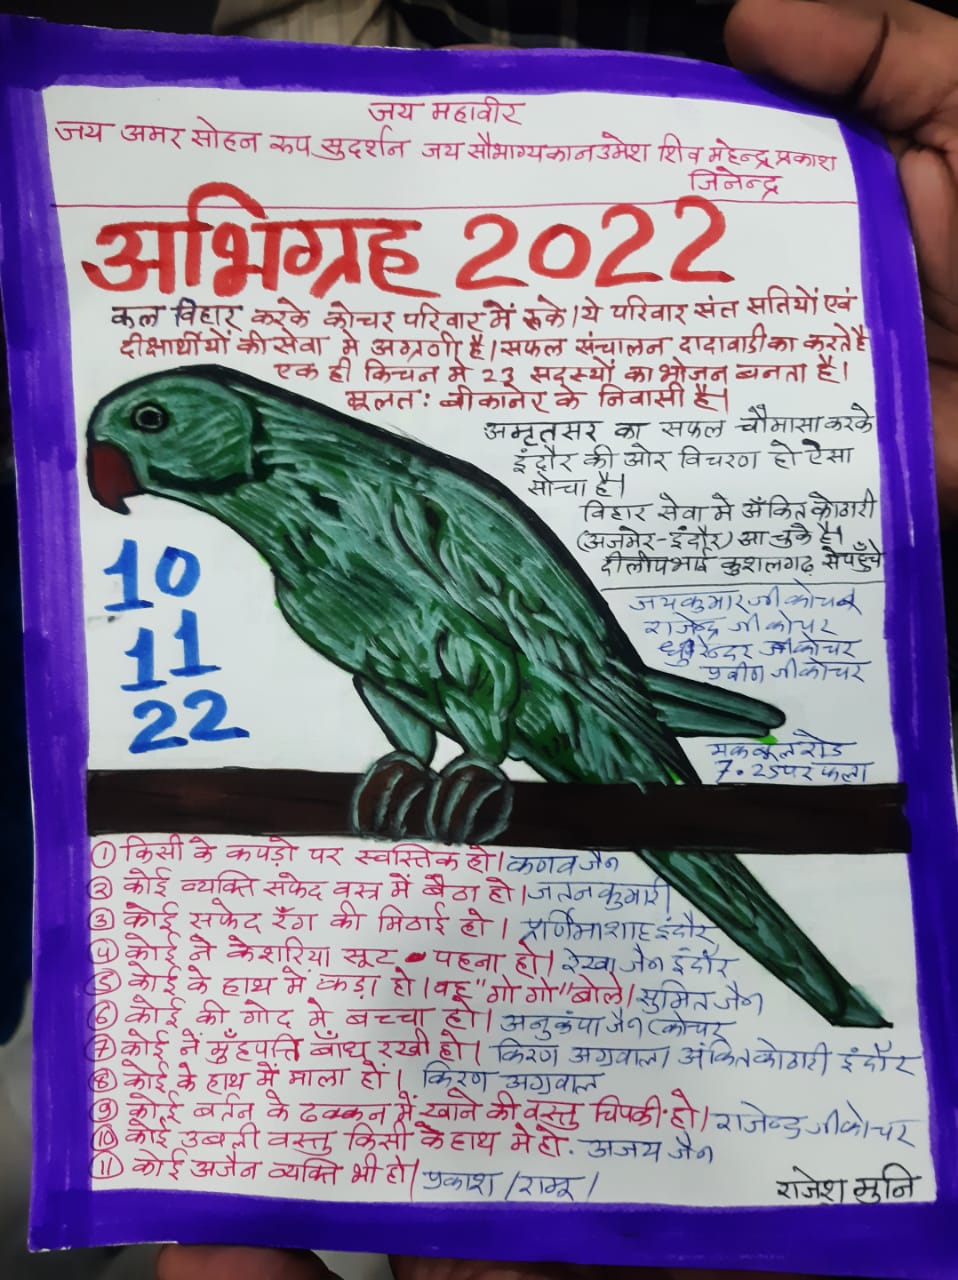 जय महावीर
जय अमर सोहन रुप सुदर्शन जय सौभाग्य कानउमेश शिव महेन्द्र प्रकाश
जिनेन्द्र
अभिग्रह 2022
कल विहार करके कोचर परिवार में रुके। ये परिवार संत सतियों एवं
दीक्षार्थीयों की सेवा मे अग्रणी है। सफल संचालन दादावाडी का करते है
एक ही किचन मे 23 सदस्यों का भोजन बनता है।
मूलतः बीकानेर के निवासी है।
अमृतसर का सफल चौमासा करके
इंदौर की ओर विचरण हो ऐसा
सोचा है।
विहार सेवा मे अँकित कोठारी
(अजमेर-इंदौर) आ चुके है।
दीलीपभाई कुशलगढ़ से पहुँचे
जयकुमार जी कोचर
राजेन्द्र जी कोचर
जी कोचर
प्रवीण जी कोचर
10
11
22
रोड
7.25 पर फला
① किसी के कपड़ो पर स्वस्तिक हो। कणव जैन
② कोई व्यक्ति सफेद वस्त्र में बैठा हो। जतन कुमारी
③ कोई सफेद रँग की मिठाई हो। पूर्णिमा शाह इंदौर
④ कोई ने केशरिया सूट पहना हो। रेखा जैन इंदौर
⑤ कोई के हाथ में कड़ा हो। वह "गो गो" बोले। सुमित जैन
⑥ कोई की गोद मे बच्चा हो। अनुकंपा जैन (कोचर
⑦ कोई नें मुँहपत्ति बाँध रखी हो। किरण अग्रवाल। अंकित कोठारी इंदौर
⑧ कोई के हाथ में माला हो। किरण अग्रवाल
⑨ कोई बर्तन के ढक्कन में खाने की वस्तु चिपकी हो। राजेन्द्र जी कोचर
⑩ कोई उबली वस्तु किसी के हाथ मे हो. अजय जैन
⑪ कोई अजैन व्यक्ति भी हो। प्रकाश / रामू /
राजेश मुनि